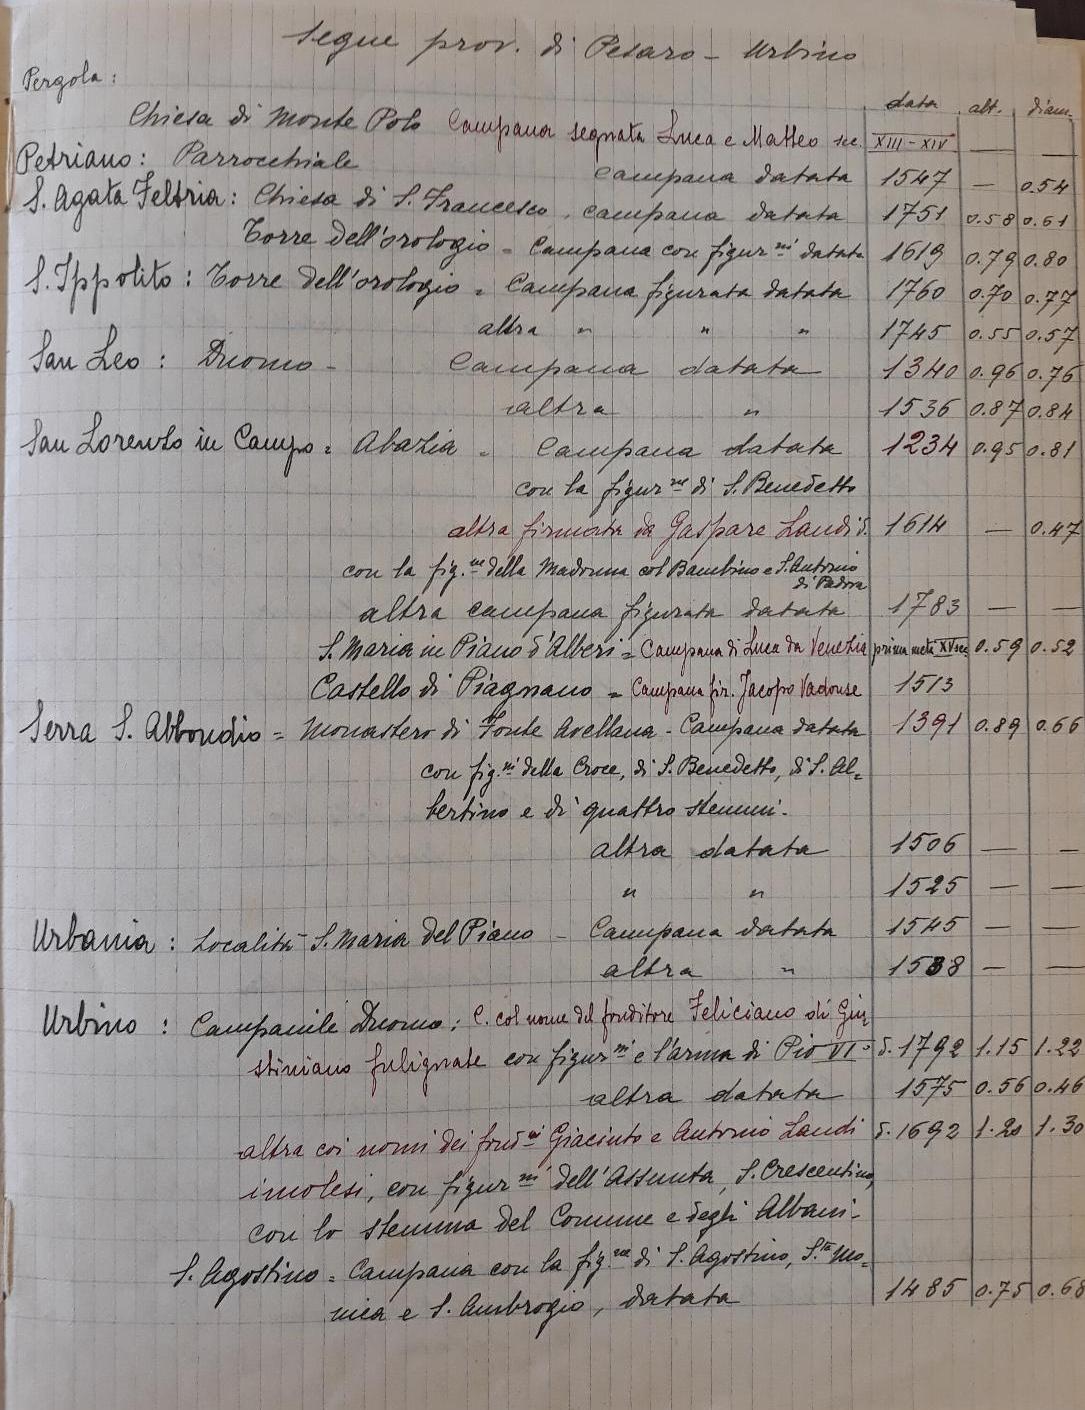 Segue prov. di Pesaro - Urbino
Pergola:
data alt. diam.
Chiesa di Monte Polo Campana segnata Luca e Matteo sec. XIII-XIV — —
Petriano: Parrocchiale Campana datata 1547 — 0.54
S. Agata Feltria: Chiesa di S. Francesco - campana datata 1751 0.58 0.61
Torre dell'orologio = Campana con figur.ni datata 1619 0.79 0.80
S. Ippolito: Torre dell'orologio = Campana figurata datata 1760 0.70 0.77
altra " " " 1745 0.55 0.57
San Leo: Duomo - Campana datata 1340 0.96 0.76
altra " 1536 0.87 0.84
San Lorenzo in Campo = Abazia = Campana datata 1234 0.95 0.81
con la figur.ne di S. Benedetto
altra firmata da Gaspare Landi d. 1614 — 0.47
con la fig.ne della Madonna col Bambino e S. Antonio
di Padova
altra campana figurata datata 1783 — —
S. Maria in Piano d'Alberi = Campana di Luca da Venezia prima metà XV sec. 0.59 0.52
Castello di Piagnano = Campana fir. Jacopo Vadonse 1513
Serra S. Abbondio = Monastero di Fonte Avellana - Campana datata 1391 0.89 0.66
con fig.ni della Croce, di S. Benedetto, di S. Al=
bertino e di quattro stemmi.
altra datata 1506 — —
" " 1525 — —
Urbania: Località S. Maria del Piano - Campana datata 1545 — —
altra " 1538 — —
Urbino: Campanile Duomo: C. col nome del fonditore Feliciano di Giu=
stiniano fulignate con figur.ni e l'arma di Pio VI° d. 1792 1.15 1.22
altra datata 1575 0.56 0.46
altra coi nomi dei fond.ri Giacinto e Antonio Landi d. 1692 1.20 1.30
imolesi, con figur.ni dell'Assunta, S. Crescentino,
con lo stemma del Comune e degli Albani -
S. Agostino = Campana con la fig.ne di S. Agostino, S.ta Mo=
nica e S. Ambrogio, datata 1485 0.75 0.68